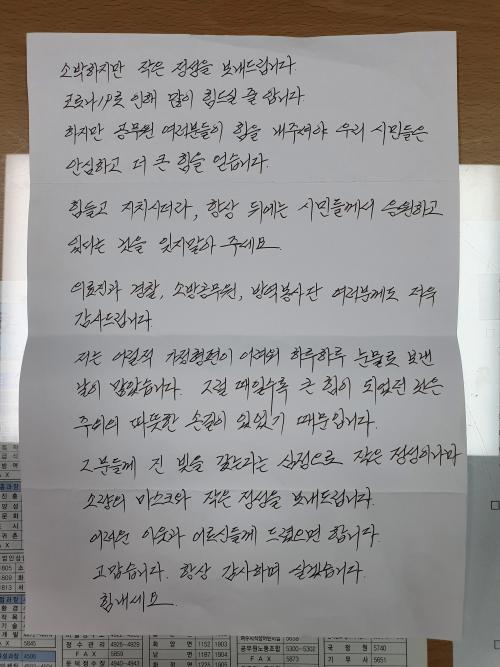 소박하지만 작은 정성을 보내드립니다.
코로나19로 인해 많이 힘드실 줄 압니다
하지만 공무원 여러분들이 힘을 내주셔야 우리 시민들은
안심하고 더 큰 힘을 얻습니다.
힘들고 지치시더라도, 항상 뒤에는 시민들께서 응원하고
있다는 것을 잊지말아 주세요.
의료진과 경찰, 소방공무원, 방역봉사단 여러분께도 저욱
감사드립니다
저는 어릴적 가정형편이 어려워 하루하루 눈물로 보낸
날이 많았습니다. 그럴 때일수록 큰 힘이 되었던 것은
주위의 따뜻한 손길이 있었기 때문입니다.
그분들께 진 빚을 갚는다는 심정으로 작은 정성이나마
소량의 마스크와 작은 정성을 보내드립니다.
어려운 이웃과 어르신들께 드렸으면 합니다.
고맙습니다. 항상 감사하며 살겠습니다.
힘내세요.
정수관리 4925~4929
화양면 1152 1903
남면 1187 1904
공무원노동조합 5300~5302
국정원 5740
기무사 5651